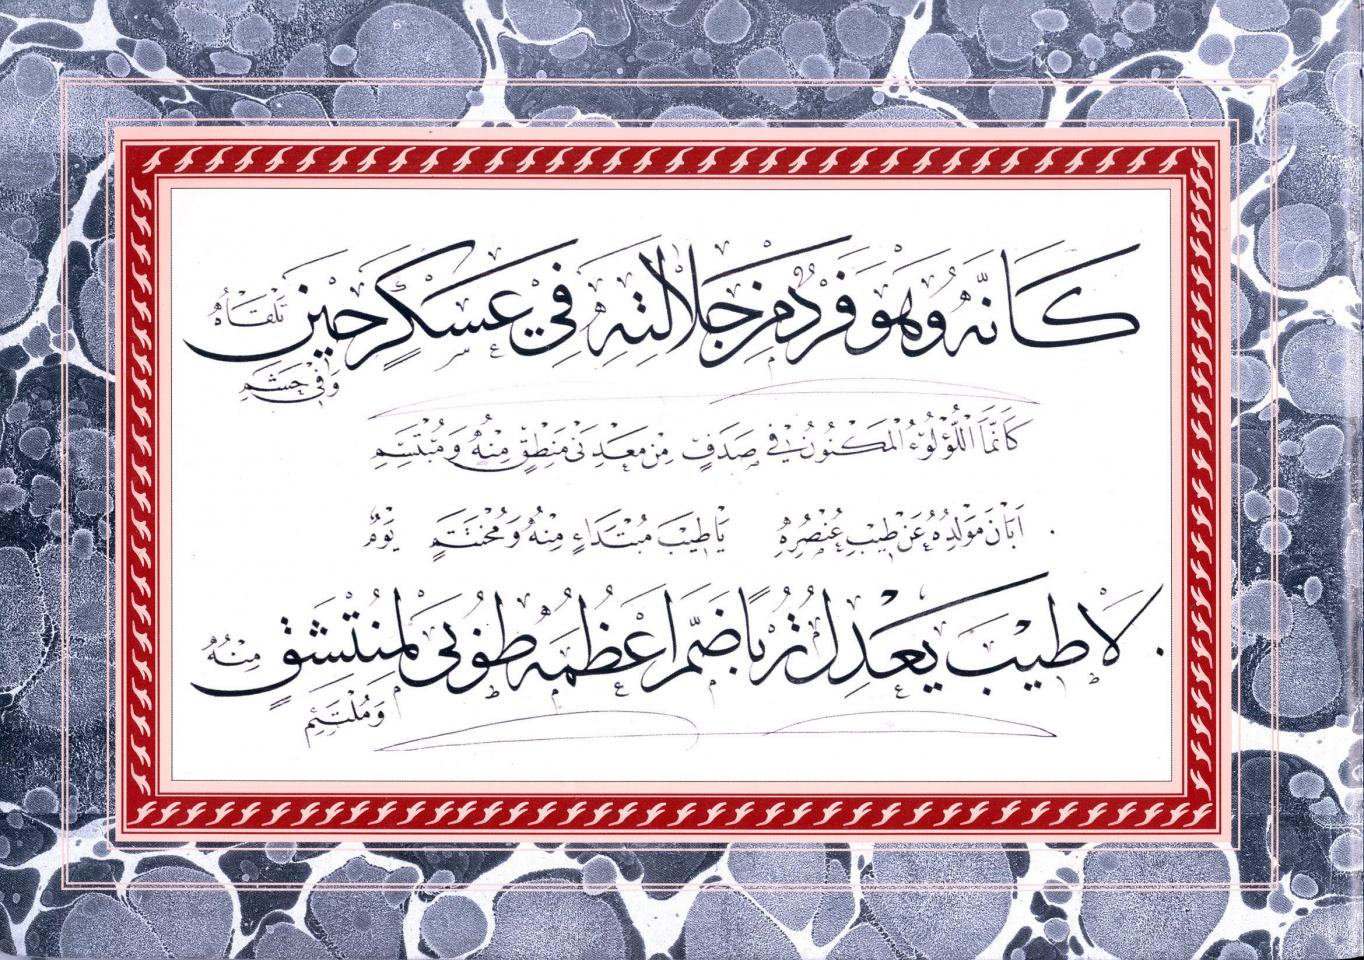 كَانَّهُ وَهْوَ فَرْدٌ مِنْ جَلَالَتِهِ فِي عَسْكَرٍ حِينَ تَلْقَاهُ
وَفِي حَشَمِ
كَانَّمَا اللُّؤْلُؤُ الْمَكْنُونُ فِي صَدَفٍ مِنْ مَعْدِنَىْ مَنْطِقٍ مِنْهُ وَمُبْتَسِمِ
اَبَانَ مَوْلِدُهُ عَنْ طِيبِ عُنْصُرِهِ يَاطِيبَ مُبْتَدَاءٍ مِنْهُ وَمُخْتَتَمٍ يَوْمٌ
لَا طِيبَ يَعْدِلُ تُرْبًا ضَمَّ اَعْظُمَهُ طُوبَى لِمُنْتَشِقٍ مِنْهُ
وَمُلْتَئِمِ